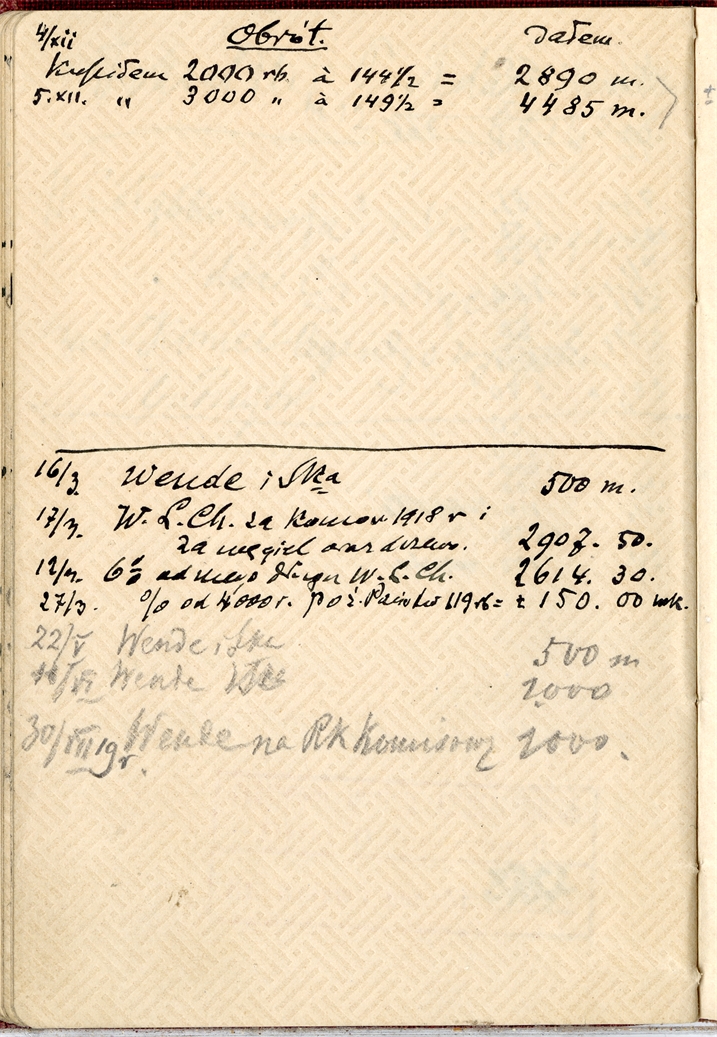 4/xii Obrót. Dałem.
Kupiłem 2000 rb. à 144 1/2 = 2890 m.
5.xii. " 3000 " à 149 1/2 = 4485 m.
16/3. Wende i Ska 500 m.
17/3. W. L. Ch. za komor. 1918 r i
za węgiel oraz drzewo. 2907. 50.
12/3. 6% od długu W. L. Ch. 2614. 30.
27/3. % od 4000 r. poż. 119 rb = 150. 00 mk.
22/V Wende i Ska 500 m
/VI Wende i Ska 1000
30/VII 19 r. Wende na RK Komisowy 1000.